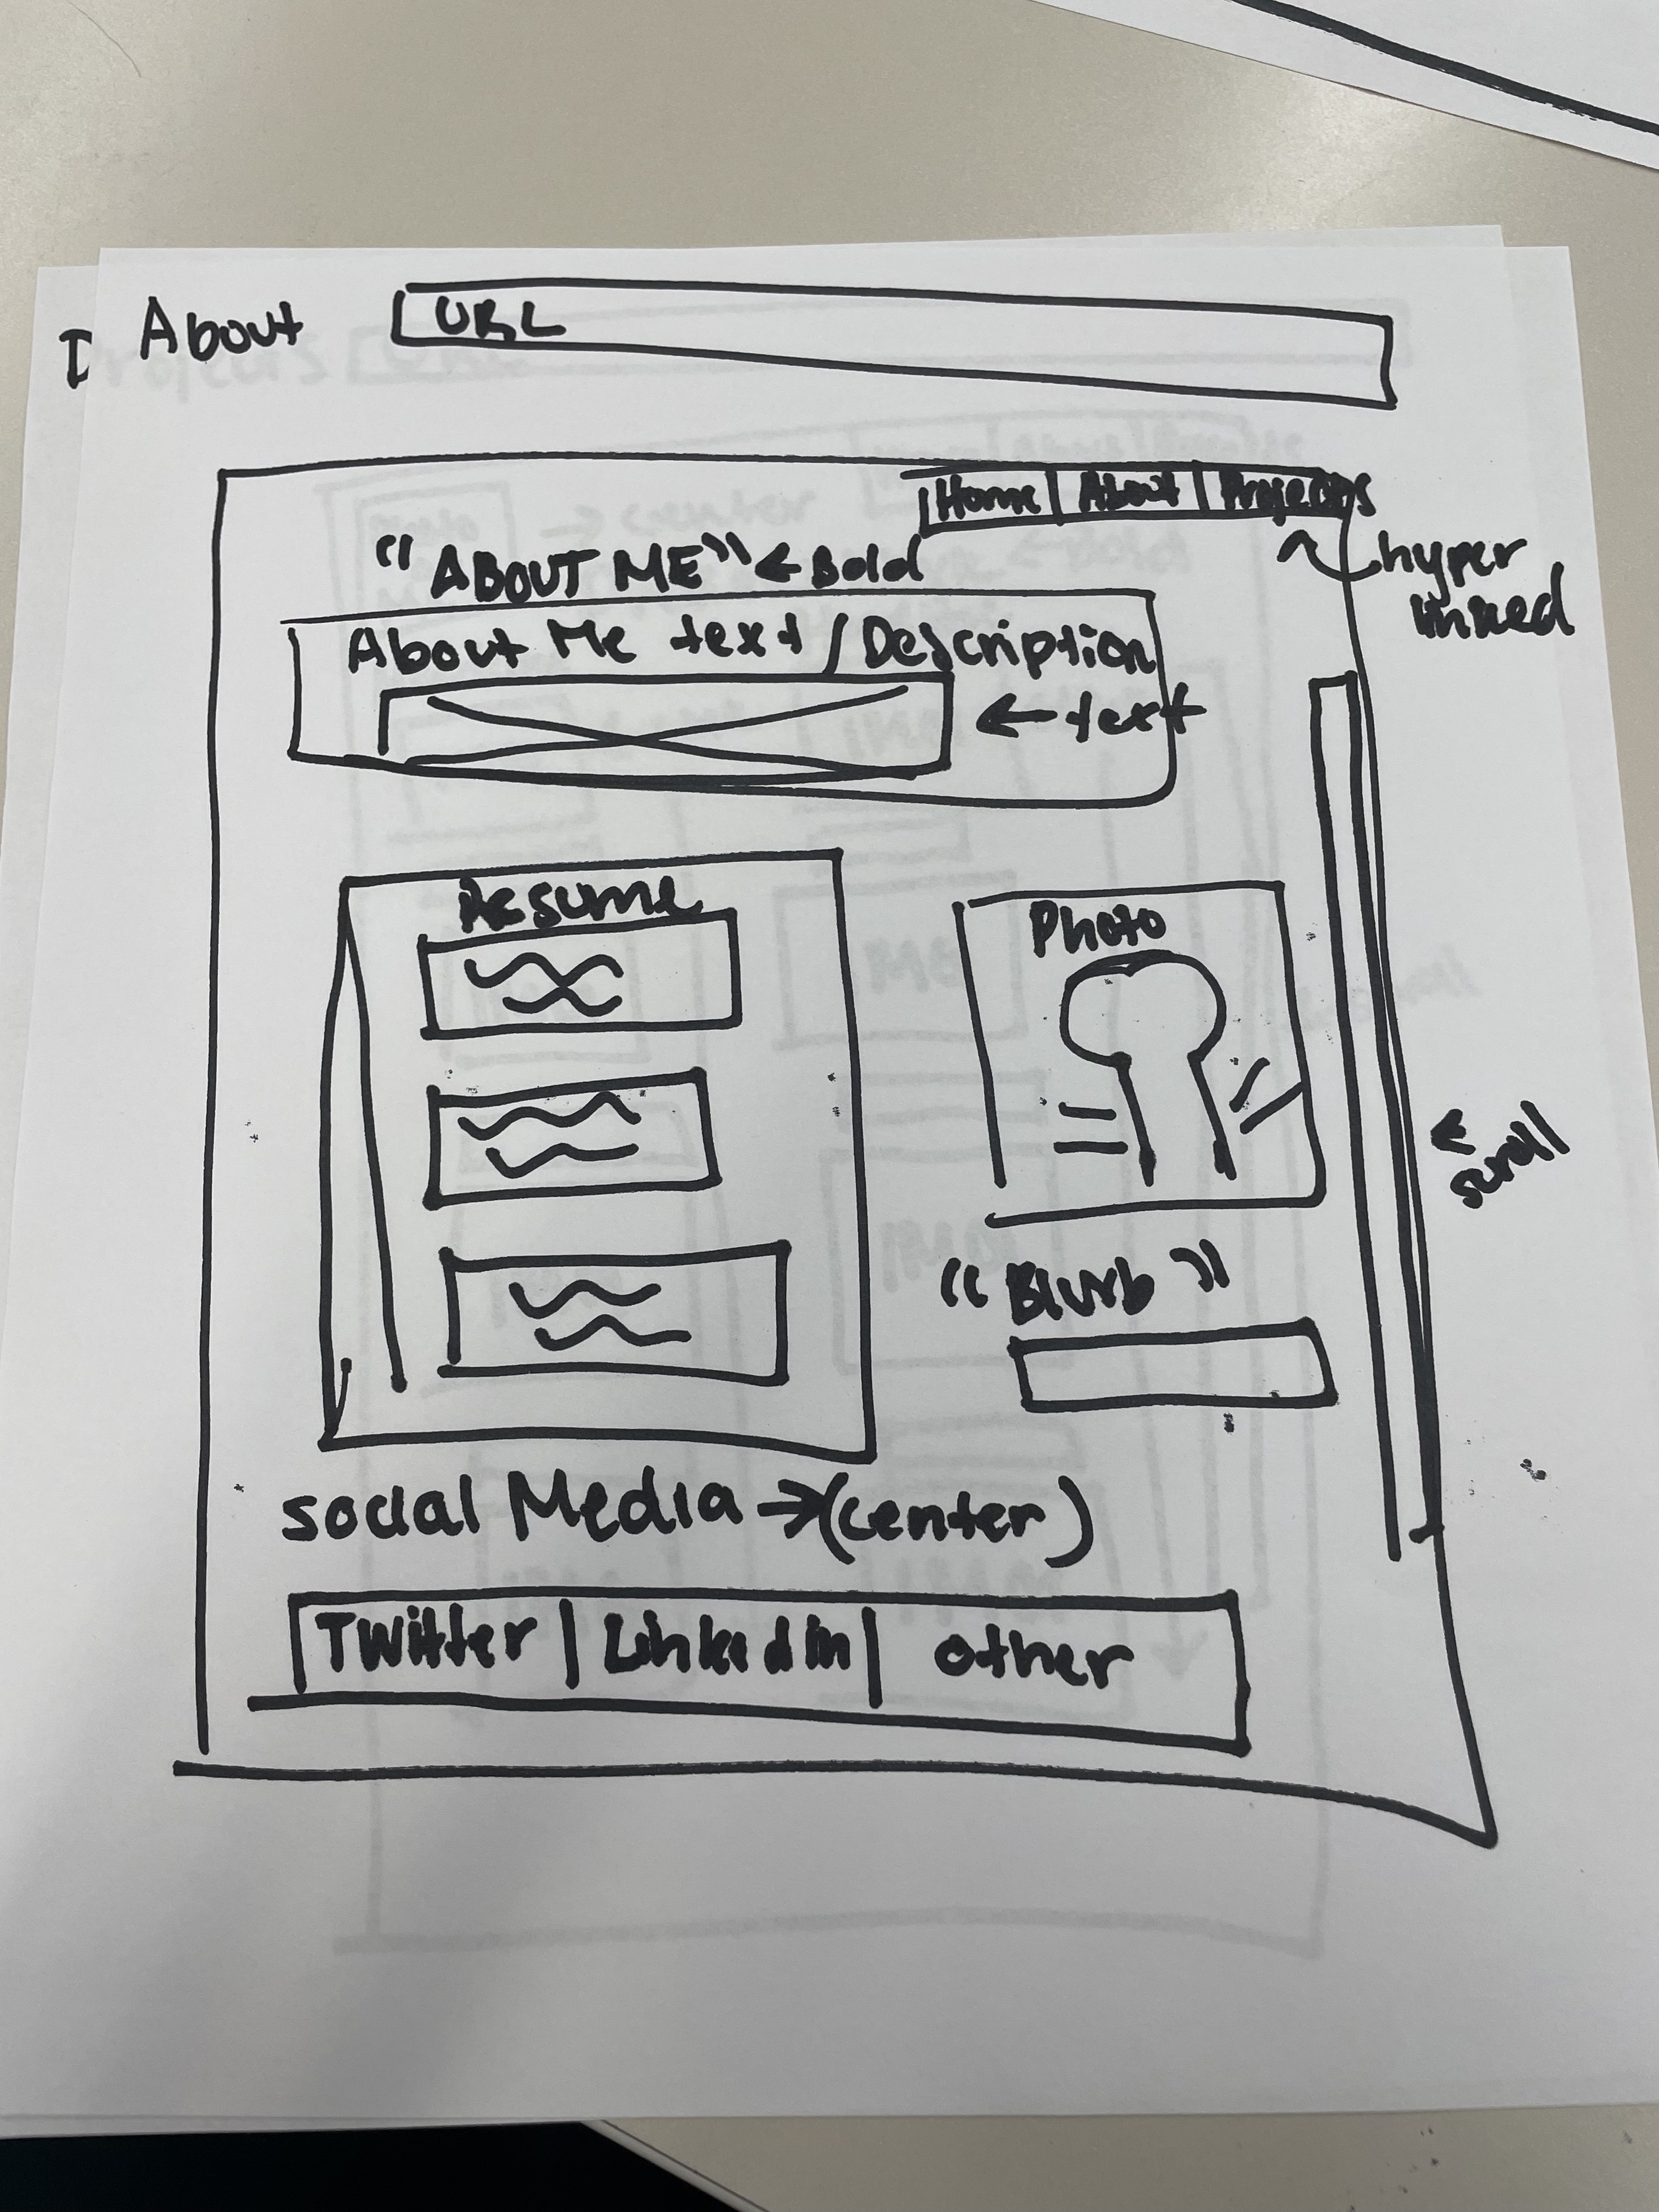 About
URL
Home | About | Projects
hyper
linked
"ABOUT ME" ← Bold
About Me text / Description
← text
Resume
Photo
← scroll
"Blurb"
social Media → (center)
Twitter | Linked in | other